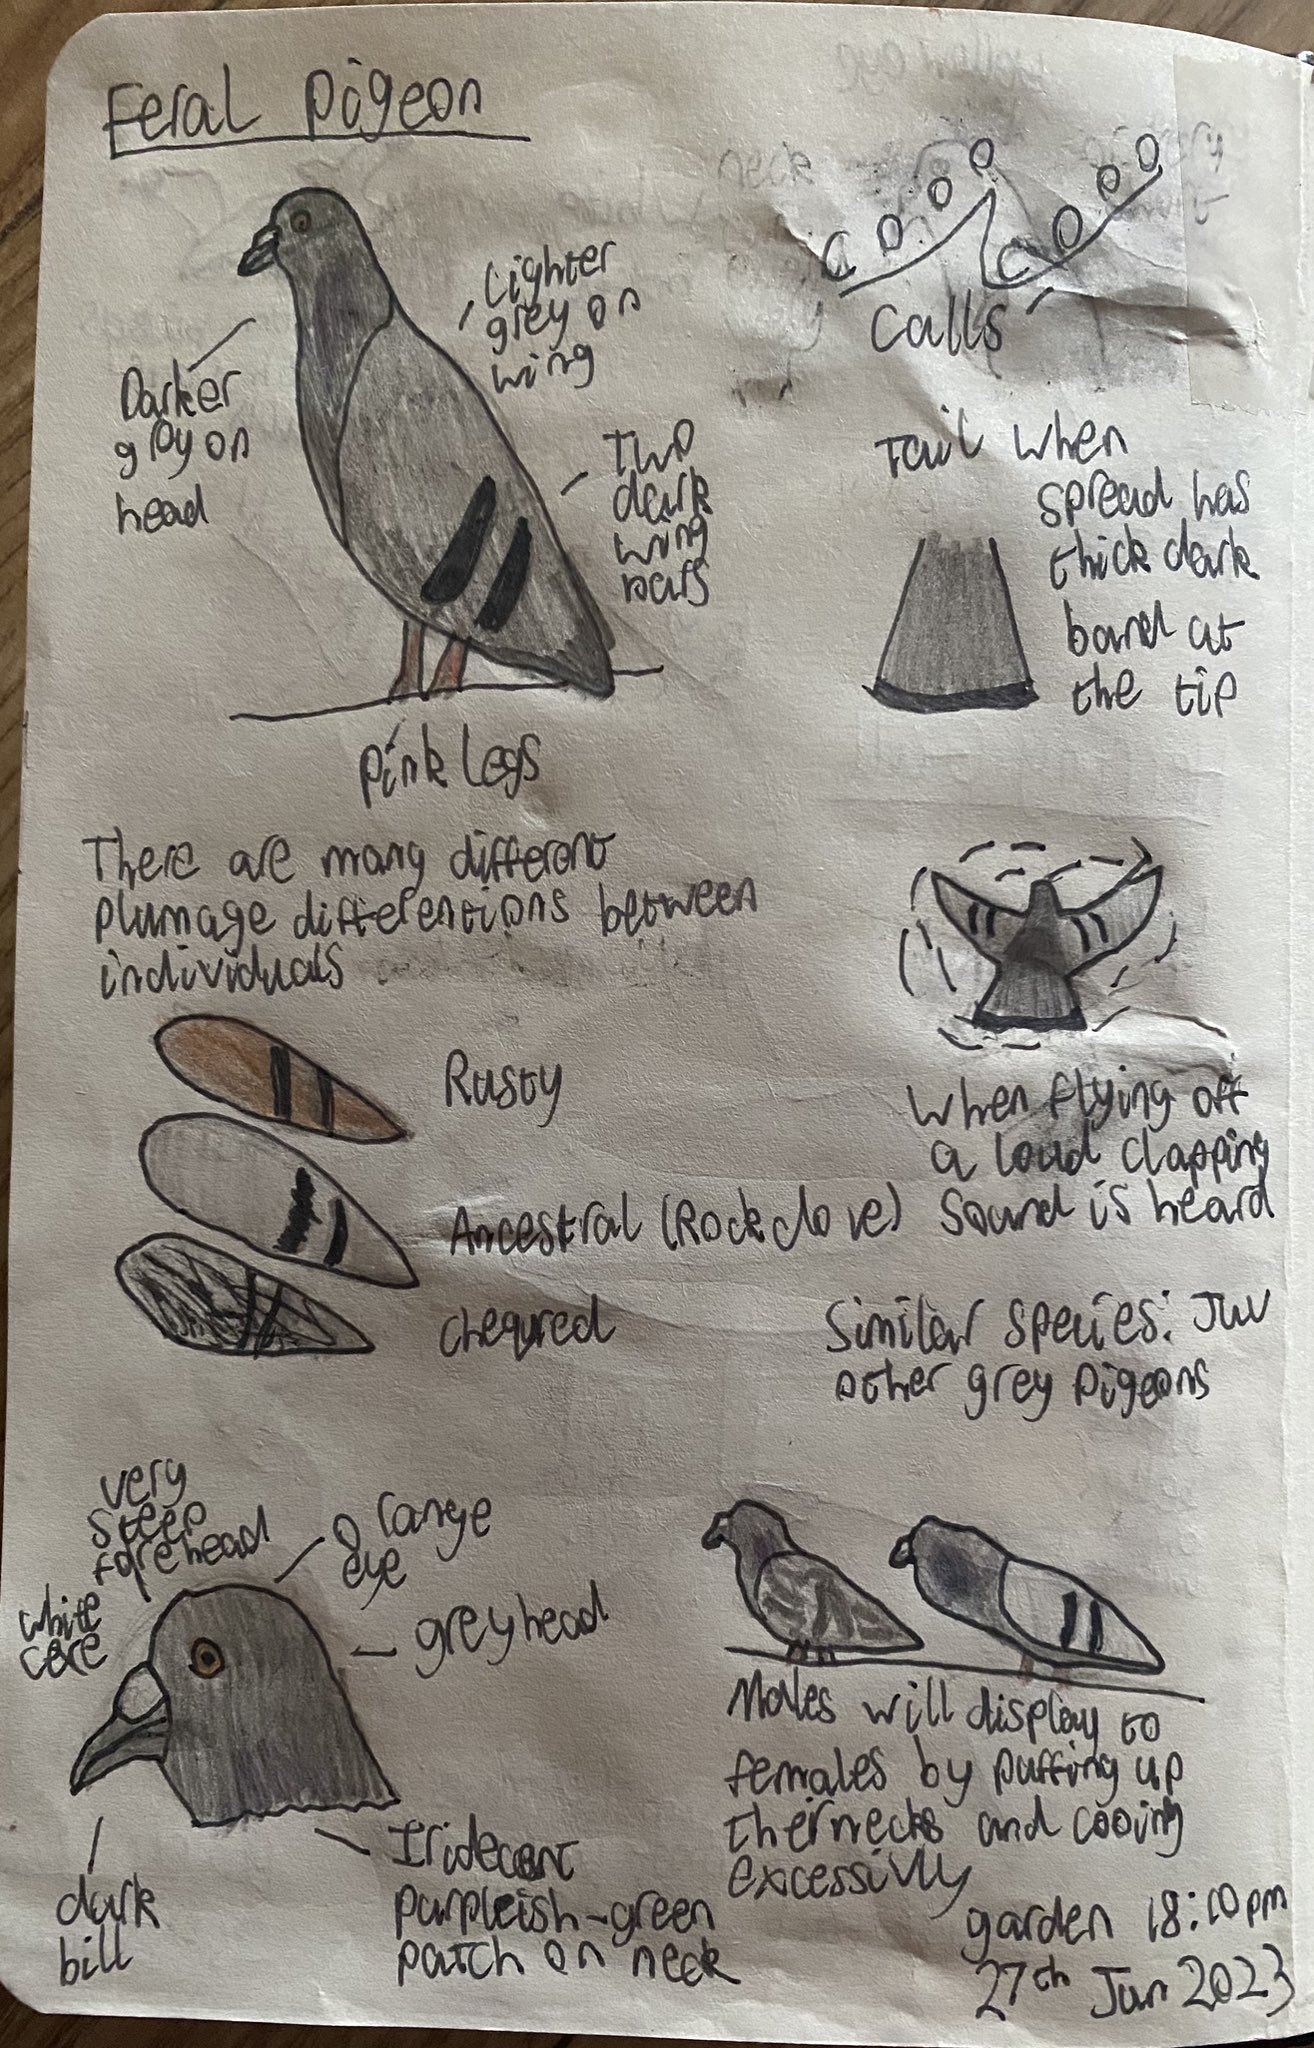 Feral pigeon
Lighter
grey on
wing
Darker
grey on
head
Two
dark
wing
bars
pink legs
Cooocooo
Calls
Tail when
spread has
thick dark
band at
the tip
There are many different
plumage differentions between
individuals
Rusty
Ancestral (Rock dove)
chequred
When flying off
a loud clapping
sound is heard
Similar species: Juv
other grey pigeons
very
steep
forehead
orange
eye
white
cere
grey head
dark
bill
Iridecent
purpleish-green
patch on neck
Males will display to
females by puffing up
ther necks and cooing
excessivly
garden 18:10pm
27th Jun 2023